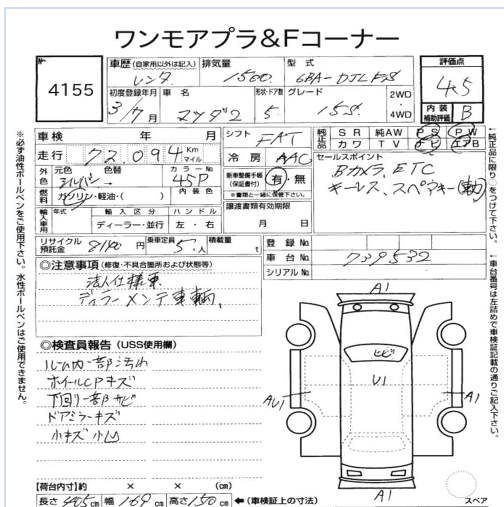 ワンモアプラ&Fコーナー
№ 4155
車歴 (自家用以外は記入) 排気量 型式 評価点
レンタ 1500 6BA-DJLFS 4.5
初度登録年月 車名 形状・ドア数 グレード 2WD ・ 4WD
3/7月 マツダ2 5 15S
内装補助評価 B
車検 年 月 シフト FAT
純正品 SR 純AW PS PW
カワ TV ナビ エアB
走行 72,094 Km マイル 冷房 AAC
外色 元色 色替 カラー№
シルバー 45P
新車整備手帳(保証書付) 有・無
※書類と一緒に保管下さい。
セールスポイント
Bカメラ、ETC
キーレス、スペアキー(有)
燃料 ガソリン・軽油・( ) 内装色
譲渡書類有効期限
月 日
輸入車用 年式 輸入区分 ハンドル
ディーラー・並行 左・右
リサイクル預託金 8140円 乗車定員 5人 積載量 t
登録№
車台№ 739532
シリアル№
◎注意事項 (修復・不具合箇所および状態等)
法人仕様車
ディーラーメンテ車輌、
◎検査員報告 (USS使用欄)
ルーム内一部汚れ
ホイールCPキズ
下回り一部サビ
ドアミラーキズ
小キズ小凹
A1
ヒビ
U1
AU1
A1
A1
スペア
【荷台内寸】約 × × (cm)
長さ 405 cm 幅 169 cm 高さ 150 cm ←(車検証上の寸法)
※必ず油性ボールペンをご使用下さい。水性ボールペンはご使用できません。
↑純正品に限り○をつけて下さい。
↑車台番号は左詰めで車検証記載の通りご記入下さい。